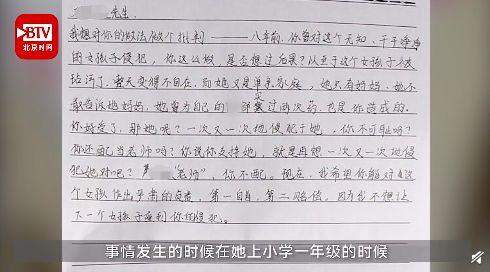 BTV
北京时间
先生
我想对你的做法做个批判——八年前,你曾对这个无知、干干净净
的女孩子侵犯,你这么做,是否想过后果?从至于这个女孩子被
玷污了,整天变得不自在,而她又是单亲家庭,她只有妈妈,她不
敢告诉她妈妈,她曾为自己的 部买过两次药,也是你造成的。
你好受了,那她呢?一次又一次地侵犯于她,你不可耻吗?
你还配当老师吗?你说你支持她,就是再想一次又一次地侵
犯她对吧? “老师”,你不配。现在,我希望你能对这
个女孩作出严肃的负责,第一自首,第二赔偿,因为我不想让
下一个女孩子受到你的侵犯。
事情发生的时候在她上小学一年级的时候